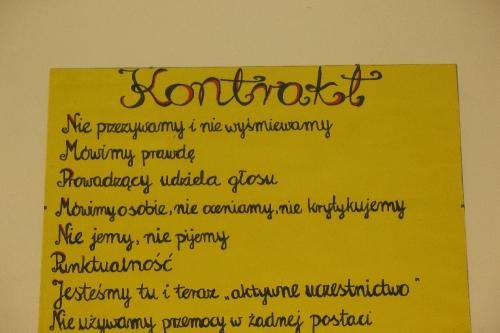 Kontrakt
Nie przezywamy i nie wyśmiewamy
Mówimy prawdę
Prowadzący udziela głosu
Mówimy o sobie, nie oceniamy, nie krytykujemy
Nie jemy, nie pijemy
Punktualność
Jesteśmy tu i teraz „aktywne uczestnictwo"
Nie używamy przemocy w żadnej postaci